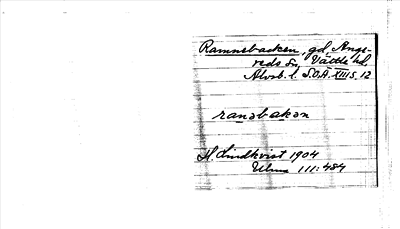 Ramnebacken, gd, Ange-
reds sn, Vättle hd,
Älvsb. l. S.O.Ä. XIII s. 12
ranəbakən
H. Lindkvist 1904
III: 484